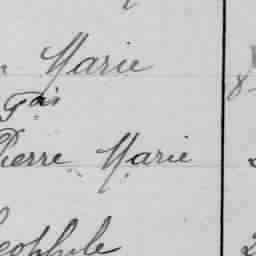 Marie
Fçois
Pierre Marie
Théophile